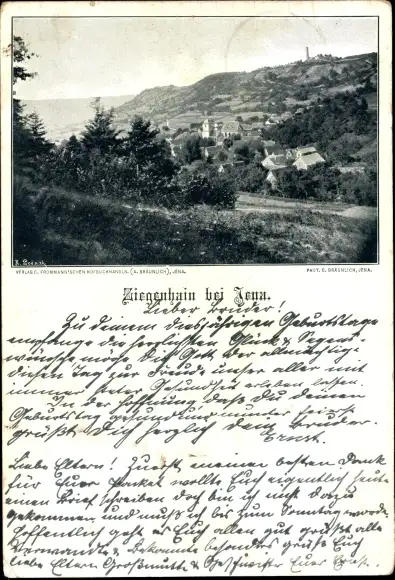 VERLAG D. FROMMANN'SCHEN HOFBUCHHANDLG. (A. BRÄUNLICH), JENA.
PHOT. E. BRÄUNLICH, JENA.
Ziegenhain bei Jena.
Lieber Bruder!
Zu deinem diesjährigen Geburtstage
empfange die herzlichsten Glück & Segens
wünsche möge Dich Gott der allmächtige
diesen Tag zur Freude unser aller mit
immer Gesundheit erleben lassen.
In der Hoffnung daß Du deinen
Geburtstag gesund und munter feierst
grüßt Dich herzlich dein Bruder
Ernst.
Liebe Eltern! Zuerst meinen besten Dank
für Euer Packet wollte Euch eigentlich heute
einen Brief schreiben doch bin ich nicht dazu
gekommen und muß ich bis zum Sonntag
Hoffentlich geht es Euch allen gut grüßt alle
Verwandte & Bekannte besonders grüßt Euch
liebe Eltern Großmutter & Geschwister Euer